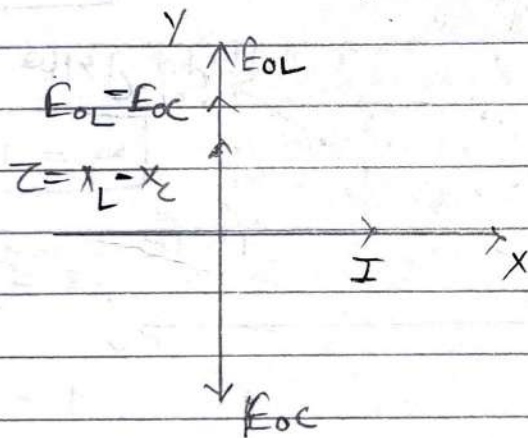 Y
E₀L
E₀L - E₀C
Z = X_L - X_C
I
X
E₀C